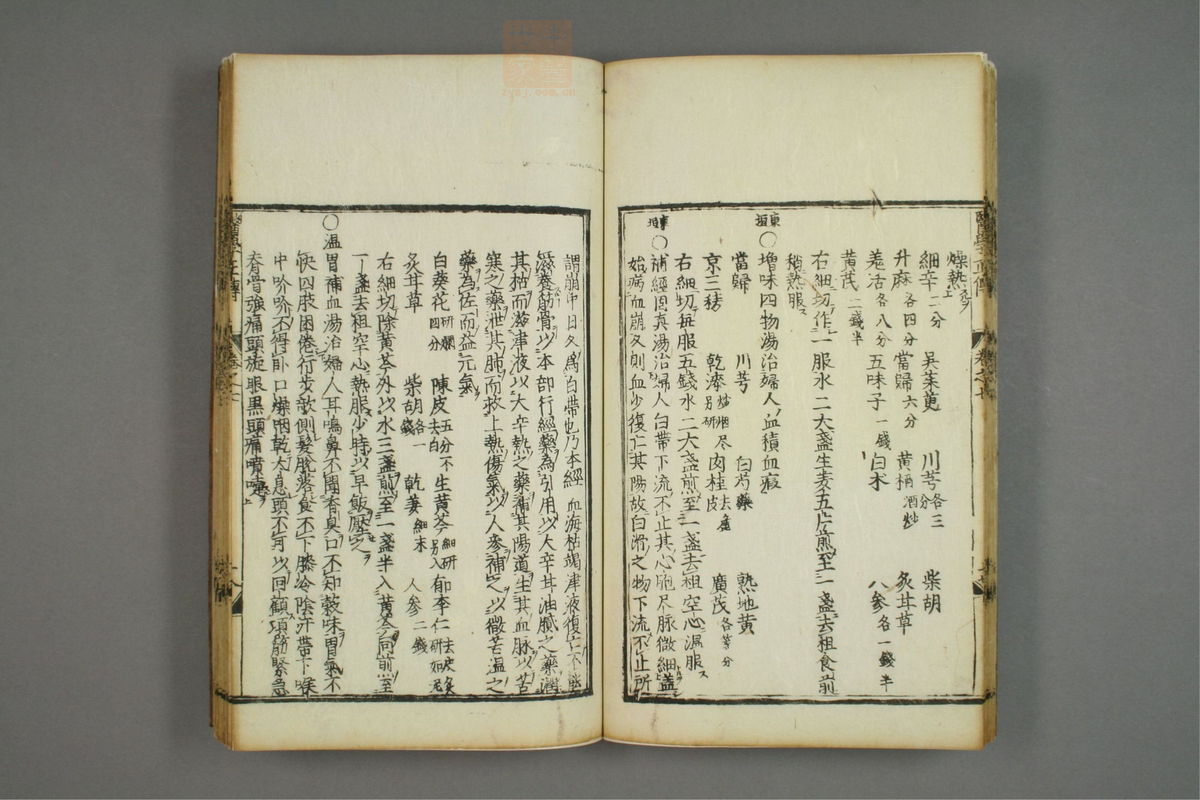 燥熱上
細辛二分 吳茱萸 川芎各三分 柴胡
升麻各四分 當歸六分 黄栢酒炒 炙甘草
羌活各八分 五味子一錢 白术 人参各一錢半
黄芪二錢半
右細切作一服水二大盞生姜五片煎至一盞去柤食前
稍熱服
東垣 ○增味四物湯治婦人血積血瘕
當歸 川芎 白芍藥 熟地黄
京三稜 乾漆炒烟尽別研 肉桂去麁皮 廣茂各等分
右細切每服五錢水二大盞煎至一盞去柤空心溫服
東垣 ○補經固真湯治婦人白帶下流不止其心胞尽脉微細蓋
始病血崩久則血少復亡其陽故白滑之物下流不止所
謂崩中日久為白帶也乃本經血海枯竭津液復亡不能
滋養筋骨以本部行經藥為引用以大辛甘油膩之藥潤
其枯而滋津液以大辛熱之藥補其陽道生其血脉以苦
寒之藥泄其肺而救上熱傷氣以人参補之以微苦溫之
藥為佐而益元氣
白葵花研爛四分 陳皮五分不去白 生黄芩細研別入 郁李仁去皮尖研如泥
炙甘草 柴胡各一錢 乾姜細末 人参二錢
右細切除黄芩外以水三盞煎至一盞半入黄芩同前至
一盞去柤空心熱服少時以早飯壓之
○溫胃補血湯治婦人耳鳴鼻不聞香臭口不知穀味胃氣不
快四肢困倦行步欹側髮脫落食不下膝冷陰汗帶下喉
中吩吩不得卧口燥咽乾太息頭不可以回顧項筋緊急
脊骨強痛頭旋眼黒頭痛噴嚏